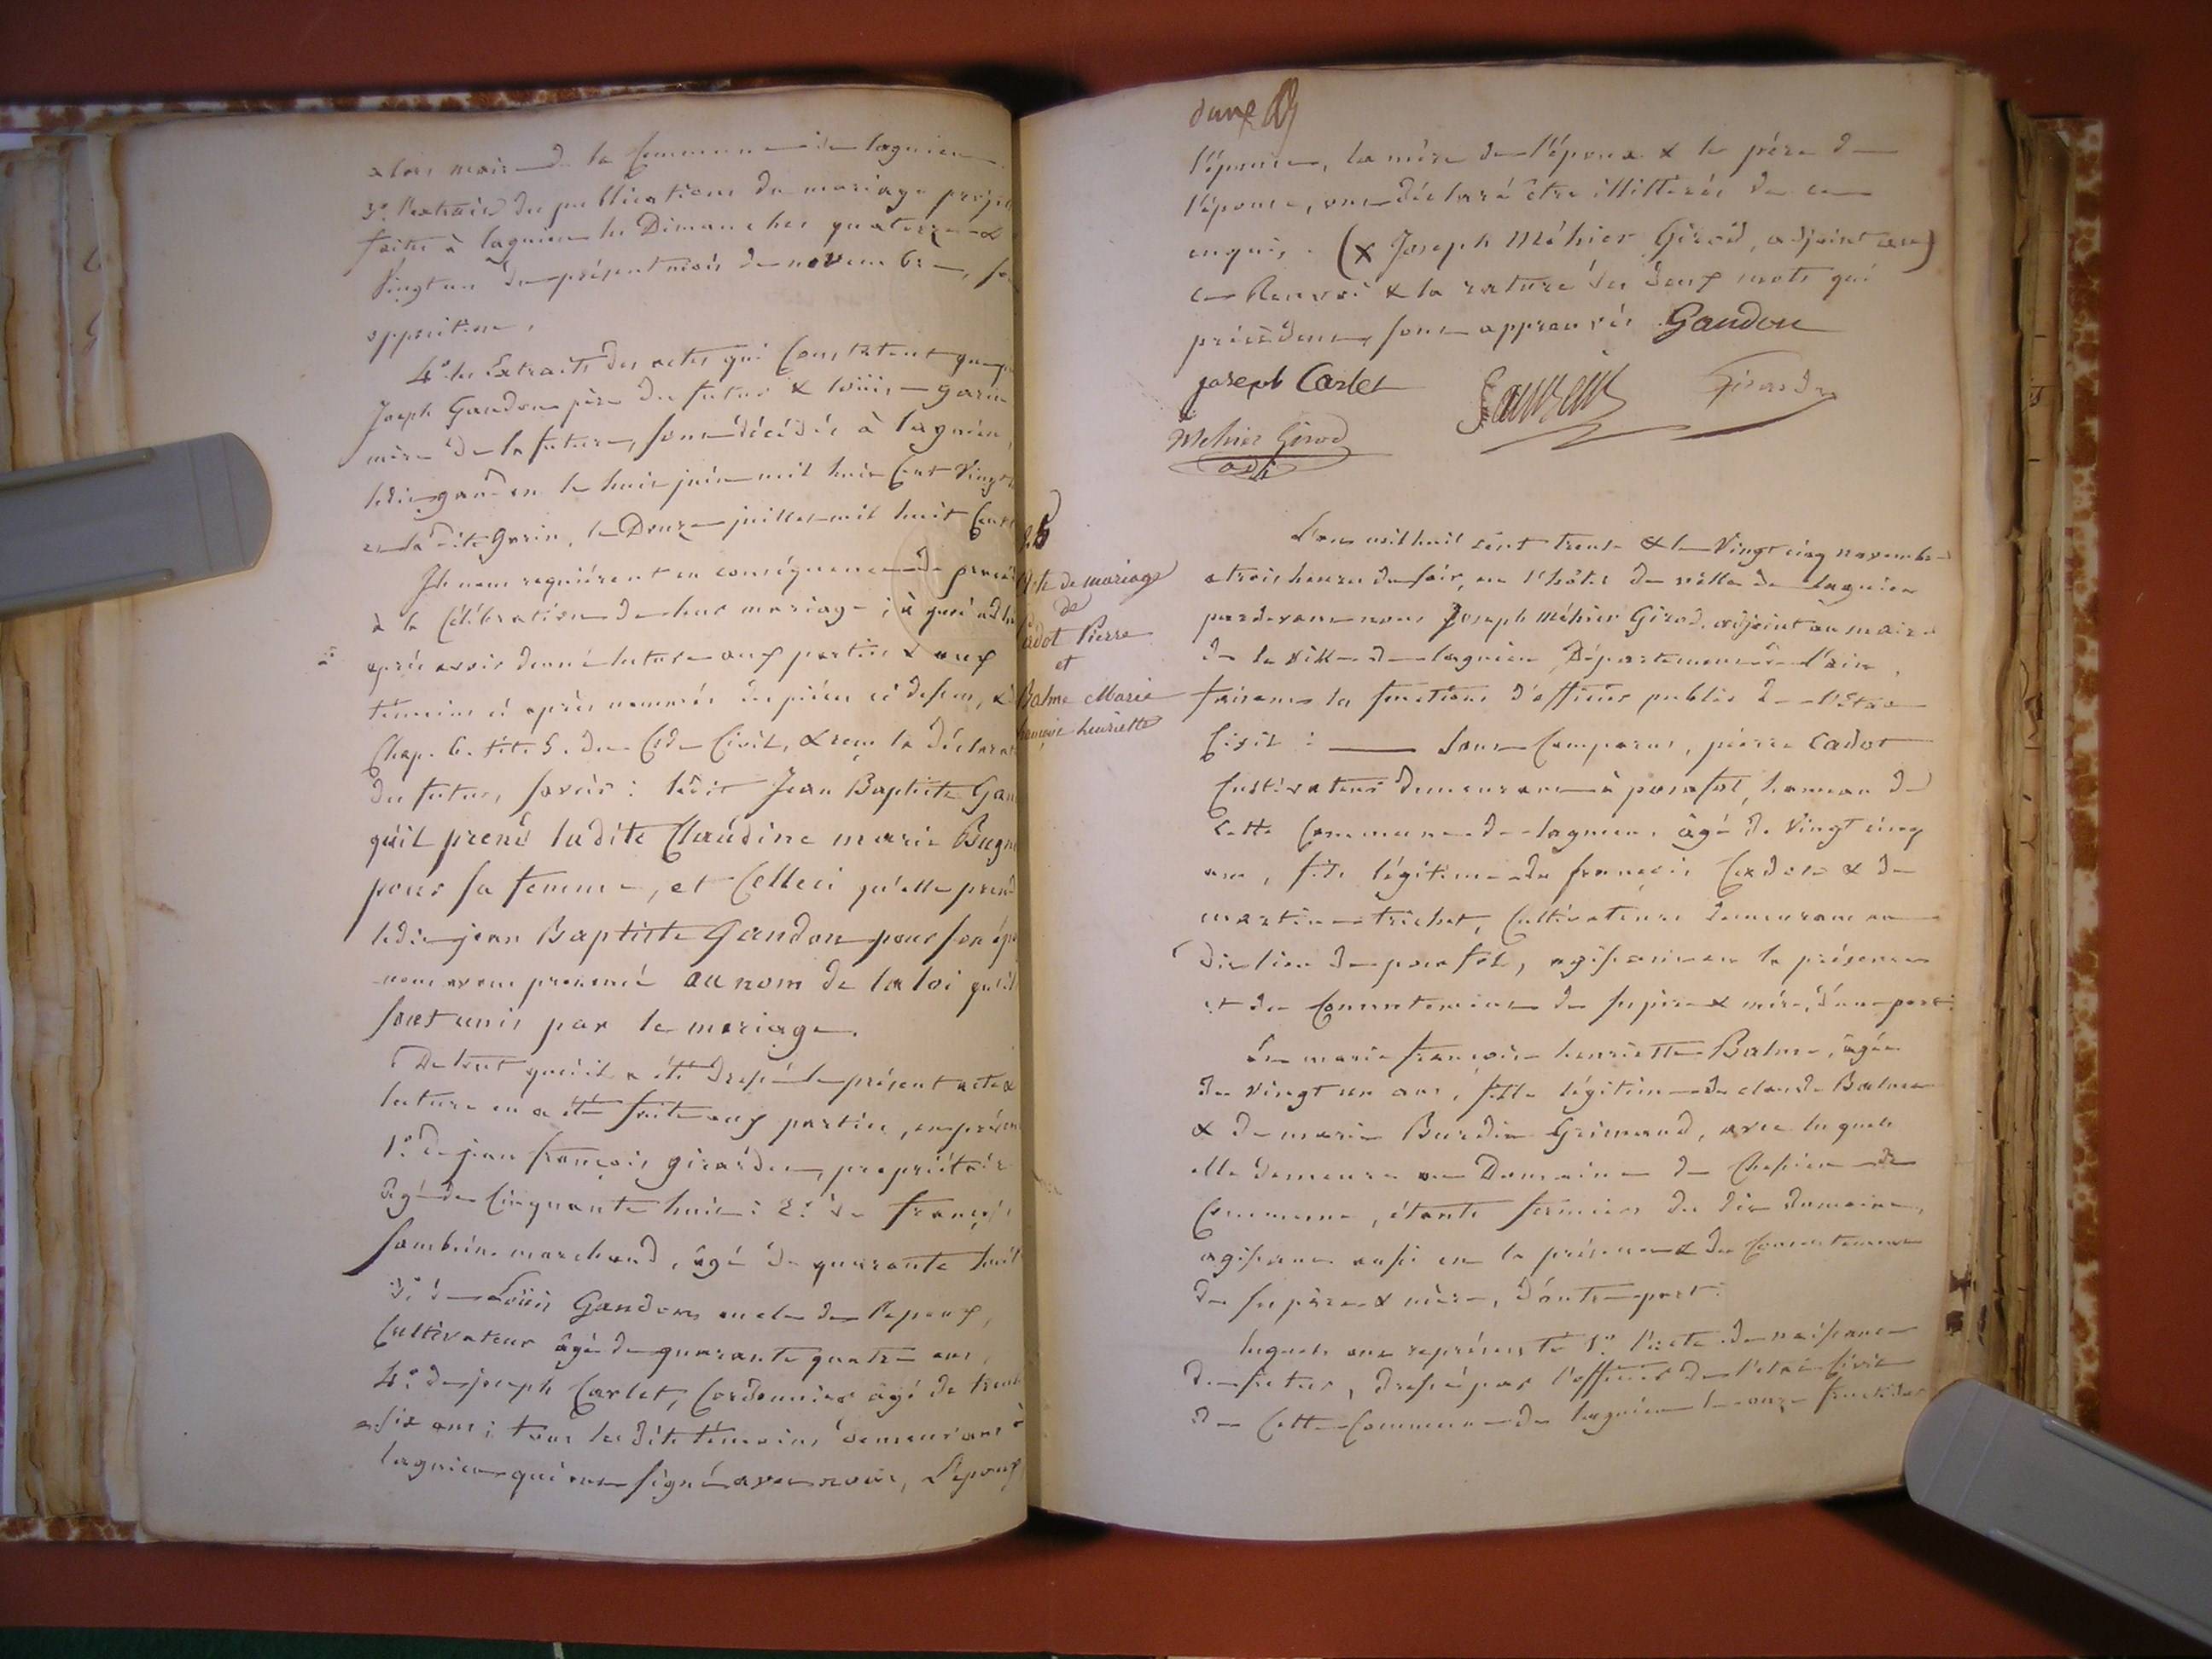 alors maire de la Commune de lagnieu
3.° l'extrait des publications du mariage projet
faites à lagnieu les Dimanches quatorze &
Vingt un du présent mois de novembre, sa
opposition,
4.° les Extraits des actes qui Constatent que
Joseph Gandon père du futur & loüise garin
mère de la future, sont décédés à lagnieu,
ledit gandon le huit juin mil huit Cent Vingt
et la dite Garin, le Douze juillet mil huit Cent
Ils nous requièrent en conséquence de procéd
à la Célébration de leur mariage ; à quoi adh
après avoir donné lecture aux parties & aux
témoins ci après nommés des pièces ci dessus, &
Chap. 6. tit. 5. du Code Civil, & reçu la déclarat
du futur, savoir : ledit Jean Baptiste Gan
qu'il prend ladite Claudine marie Bugn
pour sa femme, et Celleci qu'elle prend
ledit jean Baptiste Gandon pour son ép
nous avons prononcé au nom de la loi qu'il
sont unis par le mariage.
De tout quoi il a été dressé le présent acte &
lecture en a été faite aux parties, en présen
1.° de jean françois girardon, propriétaire
âgé de Cinquante huit : 2.° de françois
marchand, âgé de quarante huit
3.° de Loüis Gandon oncle de l'epoux,
Cultivateur âgé de quarante quatre ans,
4.° de joseph Carlet, Cordonnier âgé de trent
-six ans ; tous les dits témoins demeurans à
lagnieu qui ont signé avec nous, L'époux
l'épouse, la mère de l'époux & le père de
l'épouse, ont déclaré être illittérés de ce
enquis. (x Joseph Méhier Girod, adjoint au)
Ce Renvoi & la rature des deux mots qui
précèdent, sont approuvés Gandon
joseph Carlet Girardon
Mehier Girod
adj
26
Acte de mariage
de
Cadot Pierre
et
Balme Marie
françoise henriette
L'an mil huit cent trente & le Vingt cinq novembre
a trois heures du soir, en l'hôtel de ville de Lagnieu
pardevant nous Joseph Méhier Girod, adjoint au maire
de la ville de lagnieu Département de l'ain,
faisant les fonctions d'officier public de l'État
Civil : ___ Sont Comparus, pierre Cadot
Cultivateur demeurant à posafol, hameau de
cette Commune de lagnieu, âgé de Vingt cinq
ans, fils légitime de françois Cadot & de
martine trichet, Cultivateurs demeurant au
dit lieu de posafol, agissant en la présence
et du Consentement de ses père & mère, d'une part.
Et marie françoise henriette Balme, âgée
de vingt un ans, fille légitime de claude Balme
& de marie Burdin Grimaud, avec lesquels
elle demeure au Domaine de
Commune, étants fermiers du dit domaine,
agissant aussi en la présence & du Consentement
de ses père & mère, d'autre part.
lesquels ont représenté 1.° l'acte de naissance
du futur, dressé par l'officier de l'état Civil
de Cette Commune de lagnieu le onze fructidor